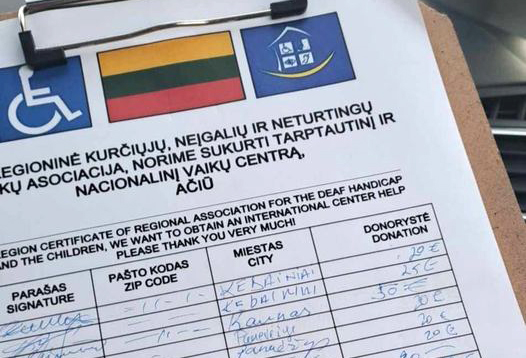 REGIONINĖ KURČIŲJŲ, NEĮGALIŲ IR NETURTINGŲ
KŲ ASOCIACIJA, NORIME SUKURTI TARPTAUTINĮ IR
NACIONALINĮ VAIKŲ CENTRĄ,
AČIŪ
REGION CERTIFICATE OF REGIONAL ASSOCIATION FOR THE DEAF HANDICAP
AND THE CHILDREN, WE WANT TO OBTAIN AN INTERNATIONAL CENTER HELP
PLEASE THANK YOU VERY MUCH!
PARAŠAS
SIGNATURE
PAŠTO KODAS
ZIP CODE
MIESTAS
CITY
DONORYSTĖ
DONATION
KEDAINIAI 20 €
KEDAINIAI 25 €
Kaunas 30 €
20 €
20 €
20 €